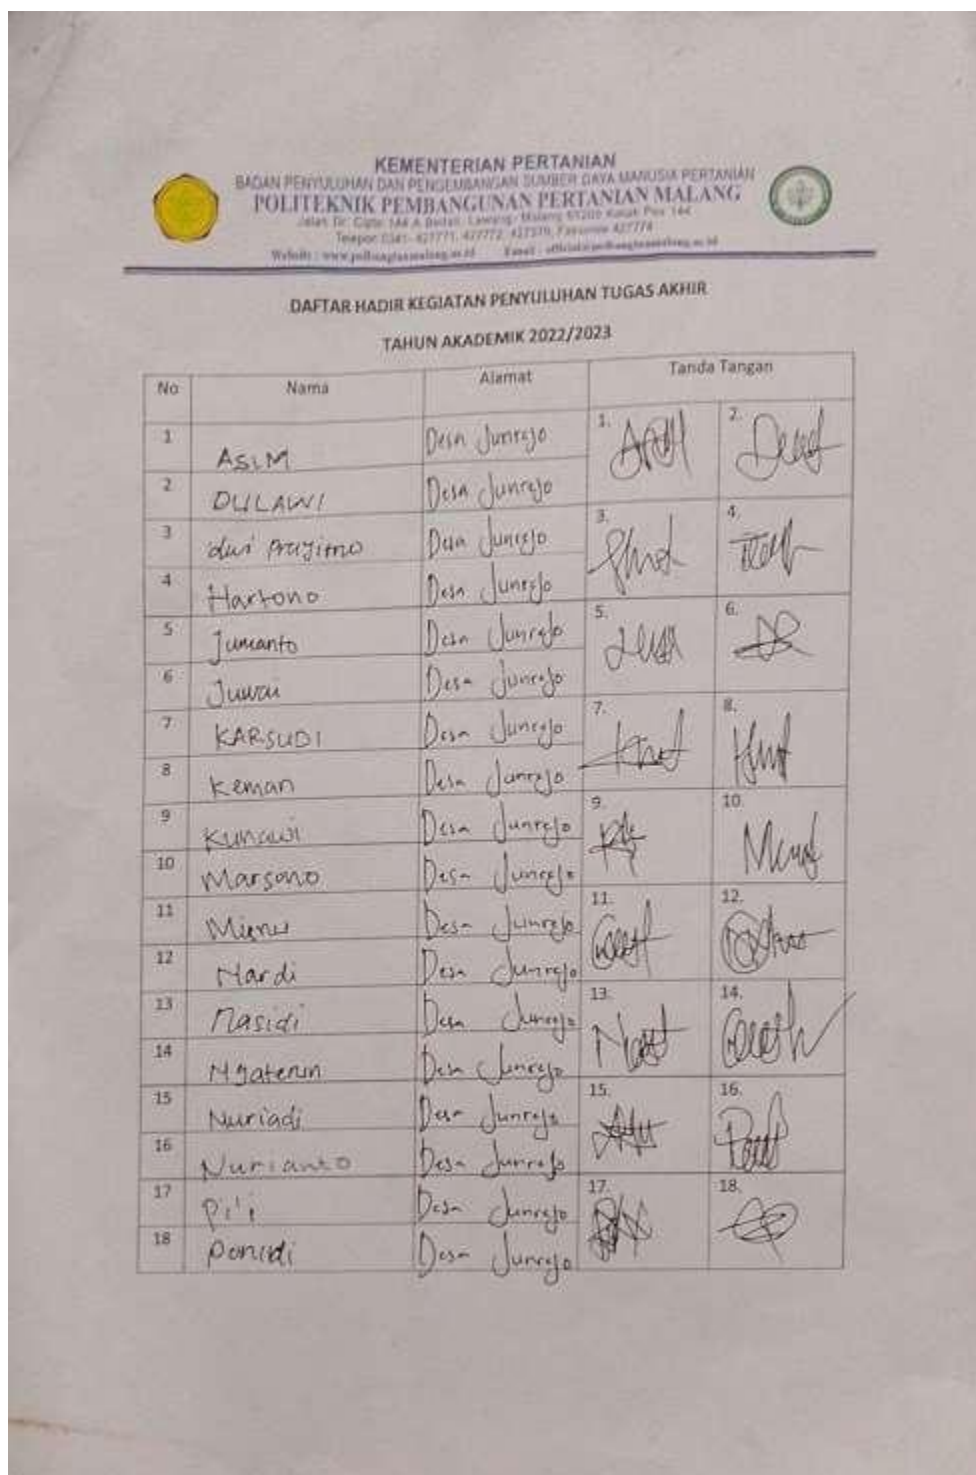 KEMENTERIAN PERTANIAN
BADAN PENYULUHAN DAN PENGEMBANGAN SUMBER DAYA MANUSIA PERTANIAN
POLITEKNIK PEMBANGUNAN PERTANIAN MALANG
Jalan Dr. Cipto 144 A Bedali - Lawang - Malang 65200 Kotak Pos 144
Telepon 0341 - 427771, 427772, 427379, Faksimile 427774
Website : www.polbangtanmalang.ac.id Email : official@polbangtanmalang.ac.id
DAFTAR HADIR KEGIATAN PENYULUHAN TUGAS AKHIR
TAHUN AKADEMIK 2022/2023
No Nama Alamat Tanda Tangan
1 ASIM Desa Junrejo 1. 2.
2 DULAWI Desa Junrejo
3 dwi Prayitno Desa Junrejo 3. 4.
4 Hartono Desa Junrejo
5 Jumanto Desa Junrejo 5. 6.
6 Juwai Desa Junrejo
7 KARSUDI Desa Junrejo 7. 8.
8 Keman Desa Junrejo
9 Kunawi Desa Junrejo 9. 10.
10 Marsono Desa Junrejo
11 Desa Junrejo 11. 12.
12 Nardi Desa Junrejo
13 Nasidi Desa Junrejo 13. 14.
14 Desa Junrejo
15 Nuriadi Desa Junrejo 15. 16.
16 Nurianto Desa Junrejo
17 Pi'i Desa Junrejo 17. 18.
18 Ponidi Desa Junrejo